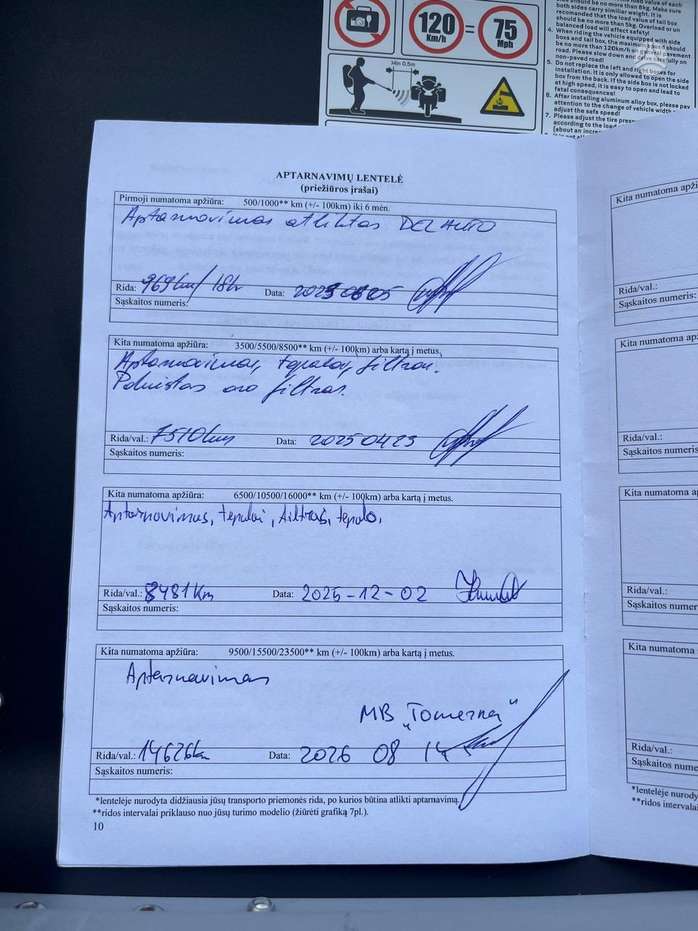 120
Km/h
=
75
Mph
Min 0,5m
both sides carry similar weight. It is
recomanded that the load value of tail box
should be no more than 5kg. Overload or un
balanced load will affect safety!
4. When riding the vehicle equipped with side
boxs and tail box, the
be no more than 120km/h
road. Please slow down
non-paved road!
5. Do not replace the left and
installation. It is only allowed to open the side
box from the back. If the side box is not locked
at high speed, it is easy to open and lead to
fatal consequences!
6. After installing aluminum alloy box, please pay
attention to the change of vehicle width
adjust the safe speed!
7. Please adjust the tire
according to the load
APTARNAVIMŲ LENTELĖ
(priežiūros įrašai)
Pirmoji numatoma apžiūra: 500/1000** km (+/- 100km) iki 6 mėn.
Aptarnavimas atliktas DELAUTO
Rida: 969km/18h Data:
Sąskaitos numeris:
Kita numatoma apžiūra: 3500/5500/8500** km (+/- 100km) arba kartą į metus.
Aptarnavimas, tepalai, filtrai.
oro filtras.
Rida/val.: 7510km Data: 20250423
Sąskaitos numeris:
Kita numatoma apžiūra: 6500/10500/16000** km (+/- 100km) arba kartą į metus.
Aptarnavimas, tepalai, filtras,
Rida/val.: 8481Km Data: 2025-12-02
Sąskaitos numeris:
Kita numatoma apžiūra: 9500/15500/23500** km (+/- 100km) arba kartą į metus.
Aptarnavimas
MB "Tomerna"
Rida/val.: 14626km Data: 2026 08 14
Sąskaitos numeris:
*lentelėje nurodyta didžiausia jūsų transporto priemonės rida, po kurios būtina atlikti aptarnavimą.
**ridos intervalai priklauso nuo jūsų turimo modelio (žiūrėti grafiką 7pl.).
10
Kita numatoma
Rida/val.:
Sąskaitos numeris:
Kita numatoma
Rida/val.:
Sąskaitos
Kita numatoma
Rida/val.:
Sąskaitos
Kita numatoma
Rida/val.:
Sąskaitos
*lentelėje
**ridos intervalai